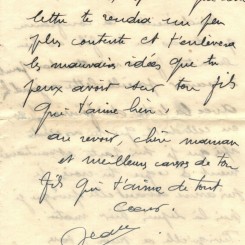 lettre te rendra un peu
plus contente et t'enlevera
les mauvais idées que tu
peux avoir sur ton fils
qui t'aime bien,
au revoir, chère maman
et meilleurs caresses de ton
fils qui t'aime de tout
Coeur.
Jean